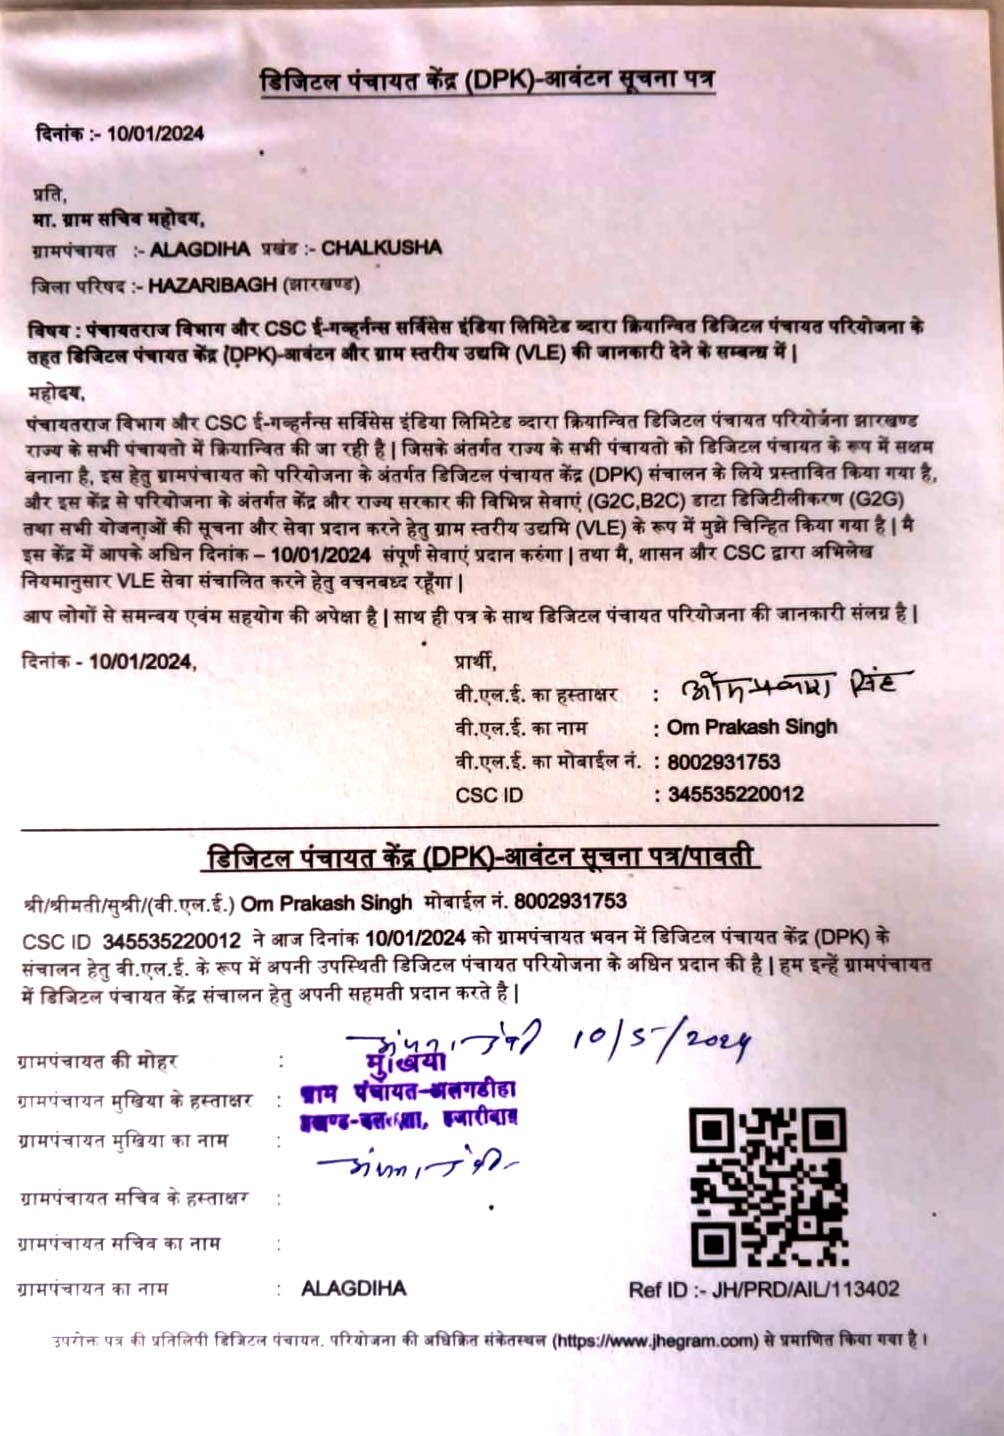 डिजिटल पंचायत केंद्र (DPK)-आवंटन सूचना पत्र
दिनांक :- 10/01/2024
प्रति,
मा. ग्राम सचिव महोदय,
ग्रामपंचायत :- ALAGDIHA प्रखंड :- CHALKUSHA
जिला परिषद :- HAZARIBAGH (झारखण्ड)
विषय : पंचायतराज विभाग और CSC ई-गव्हर्नन्स सर्विसेस इंडिया लिमिटेड व्दारा क्रियान्वित डिजिटल पंचायत परियोजना के
तहत डिजिटल पंचायत केंद्र (DPK)-आवंटन और ग्राम स्तरीय उद्यमि (VLE) की जानकारी देने के सम्बन्ध में |
महोदय,
पंचायतराज विभाग और CSC ई-गव्हर्नन्स सर्विसेस इंडिया लिमिटेड व्दारा क्रियान्वित डिजिटल पंचायत परियोजना झारखण्ड
राज्य के सभी पंचायतो में क्रियान्वित की जा रही है | जिसके अंतर्गत राज्य के सभी पंचायतो को डिजिटल पंचायत के रूप में सक्षम
बनाना है, इस हेतु ग्रामपंचायत को परियोजना के अंतर्गत डिजिटल पंचायत केंद्र (DPK) संचालन के लिये प्रस्तावित किया गया है,
और इस केंद्र से परियोजना के अंतर्गत केंद्र और राज्य सरकार की विभिन्न सेवाएं (G2C,B2C) डाटा डिजिटीलीकरण (G2G)
तथा सभी योजनाओं की सूचना और सेवा प्रदान करने हेतु ग्राम स्तरीय उद्यमि (VLE) के रूप में मुझे चिन्हित किया गया है | मै
इस केंद्र में आपके अधिन दिनांक – 10/01/2024 संपूर्ण सेवाएं प्रदान करुंगा | तथा मै, शासन और CSC द्वारा अभिलेख
नियमानुसार VLE सेवा संचालित करने हेतु वचनबध्द रहूँगा |
आप लोगों से समन्वय एवंम सहयोग की अपेक्षा है | साथ ही पत्र के साथ डिजिटल पंचायत परियोजना की जानकारी संलग्न है |
दिनांक - 10/01/2024,
प्रार्थी,
वी.एल.ई. का हस्ताक्षर : ओमप्रकाश सिंह
वी.एल.ई. का नाम : Om Prakash Singh
वी.एल.ई. का मोबाईल नं. : 8002931753
CSC ID : 345535220012
डिजिटल पंचायत केंद्र (DPK)-आवंटन सूचना पत्र/पावती
श्री/श्रीमती/सुश्री/(वी.एल.ई.) Om Prakash Singh मोबाईल नं. 8002931753
CSC ID 345535220012 ने आज दिनांक 10/01/2024 को ग्रामपंचायत भवन में डिजिटल पंचायत केंद्र (DPK) के
संचालन हेतु वी.एल.ई. के रूप में अपनी उपस्थिती डिजिटल पंचायत परियोजना के अधिन प्रदान की है | हम इन्हें ग्रामपंचायत
में डिजिटल पंचायत केंद्र संचालन हेतु अपनी सहमती प्रदान करते है |
देवी 10/5/2024
ग्रामपंचायत की मोहर : मुखिया
ग्रामपंचायत मुखिया के हस्ताक्षर : ग्राम पंचायत-अलगडीहा
प्रखण्ड-चलकुशा, हजारीबाग
ग्रामपंचायत मुखिया का नाम :
देवी
ग्रामपंचायत सचिव के हस्ताक्षर :
ग्रामपंचायत सचिव का नाम :
ग्रामपंचायत का नाम : ALAGDIHA
Ref ID :- JH/PRD/AIL/113402
उपरोक्त पत्र की प्रतिलिपी डिजिटल पंचायत. परियोजना की अधिक्रित संकेतस्थल (https://www.jhegram.com) से प्रमाणित किया गया है ।